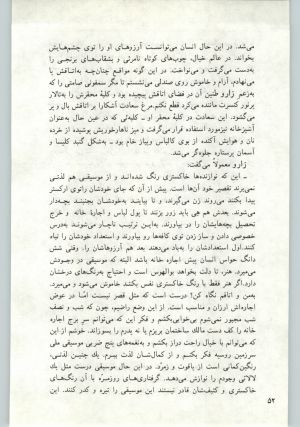 می‌شد. در این حال انسان می‌توانست آرزوهای او را توی چشمهایش
بخواند. در عالم خیال، چوب‌های کوتاه نامرئی و بشقاب‌های برنجی را
بدست می‌گرفت و می‌نواخت. در این گونه مواقع چنان‌چه به‌اتاقش پا
می‌نهادم، آرام و خاموش روی صندلی می‌نشستم تا مگر سمفونی صامتی را که
به‌زعم زارو طنین آن در فضای اتاقش پیچیده بود و کلیهٔ محقرش را به‌تالار
پرنور کنسرت مانند می‌کرد قطع نکنم. مرغ سعادت آشکارا بر اتاقش بال و پر
می‌گشود. این سعادت در کلبهٔ محقر او ـ کلبه‌ئی که در عین حال به‌عنوان
آشپزخانه نیز مورد استفاده قرار می‌گرفت و میز ناهارخوریش پوشیده از خرده
نان و هوایش آکنده از بوی کالباس وپیاز خام بود ـ به‌شکل گنبد کلیسا و
آسمان پرستاره جلوه‌گر می‌شد.
زارو معمولاً می‌گفت:
ـ این که نوازنده‌ها خاکستری رنگ شده‌اند و از موسیقی هم لذتی
نمی‌برند تقصیر خود آن‌ها است. پیش از آن که جای خودشان را توی ارکستر
پیدا بکنند می‌روند زن می‌گیرند، و تا بیایند به‌خودشان بجنبند بچه‌دار
می‌شوند. بعدش هم هی باید زور بزنند تا پول لباس و اجارهٔ خانه و خرج
تحصیل بچه‌هایشان را در بیاورند. به‌این ترتیب ناچار می‌شوند به‌درس
خصوصی دادن و ساز زدن توی کافه‌ها رو بیاورند و استعداد خودشان را تباه
کنند. اول استعدادشان را به‌باد می‌دهند بعد هم آرزوهاشان را. وقتی شش
دانگ حواس انسان پیش اجاره خانه باشد البته که موسیقی در وجودش
می‌میرد. هنر، تا دلت بخواهد بوالهوس است و احتیاج به‌رنگ‌های درخشان
دارد. اگر هنر فقط با رنگ خاکستری نفس بکشد خاموش می‌شود و می‌میرد.
به‌من و اتاقم نگاه کن! درست است که مثل قصر نیست اما در عوض
اجاره‌اش ارزان و مناسب است. از این وضع راضیم، چون که شب و نصف
شب مجبور نمی‌شوم بی‌خوابی بکشم و فکر این که می‌توانم سر برج اجاره
خانه را کف دست مالک ساختمان بریزم یا نه پدرم را بسوزاند. خوشم از این
که می‌توانم با خیال راحت دراز بکشم و به‌نغمه‌های پنج ضربی موسیقی ملی
سرزمین روسیه فکر بکنم و از کمال‌شان لذت ببرم. یك چنین لذتی
رنگین‌کمانی است از یاقوت و زمرد. در این حال موسیقی درست مثل یك
لالائی وجودم را نوازش می‌دهد. گرفتاری‌های روزمره با آن رنگ‌های
خاکستری و کثیف‌شان قادر نیستند این موسیقی را تیره و کدر کنند.
۵۲